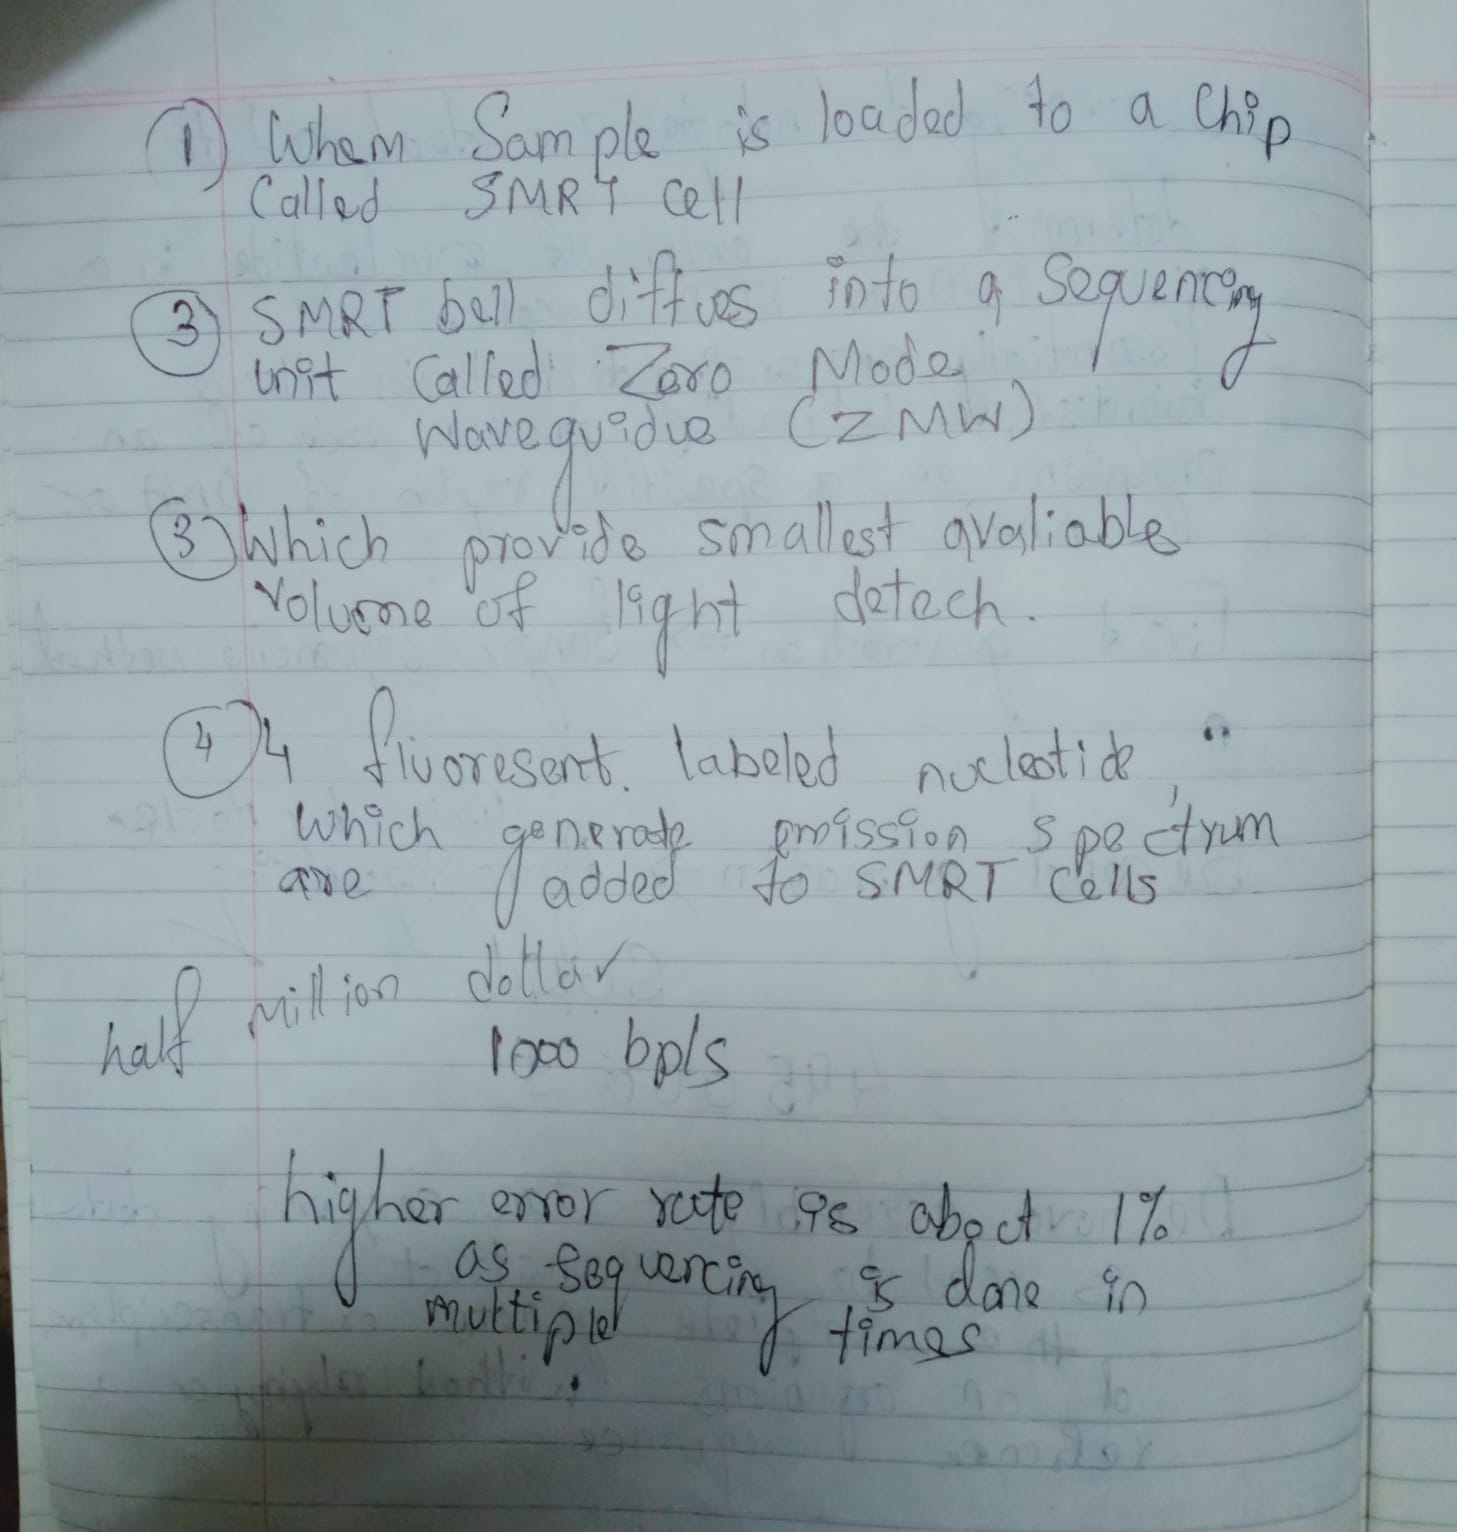 ① When Sample is loaded to a Chip
Called SMRT Cell
③ SMRT bell diffues into a Sequencing
unit Called Zero Mode
Waveguidue (ZMW)
③ Which provide smallest avaliable
Volume of light detech.
④ 4 fluoresent. labeled nucleotide
which generate emission spectrum
are added to SMRT Cells
half million dollar
1000 bpls
higher error rate is about 1%
as sequencing is done in
multiple times